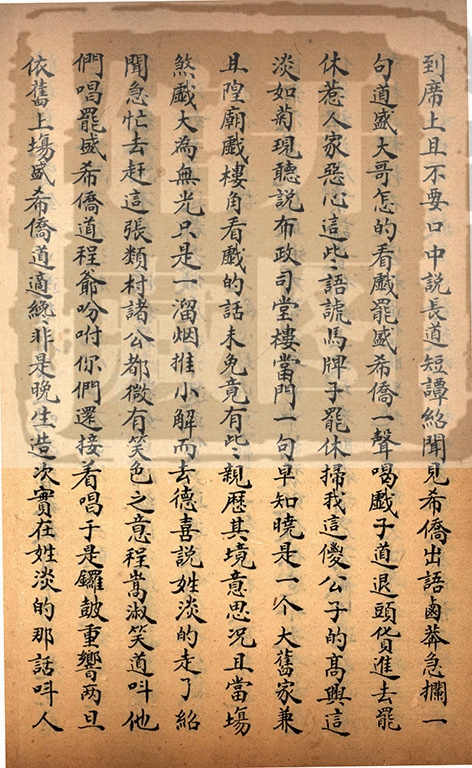 到席上且不要口中説長道短譚紹聞見希僑出語鹵莽急攔一
句道盛大哥怎的看戲罷盛希僑一聲喝戲子道退頭貨進去罷
休惹人家惡心這些語號馬牌子罷休掃我這傻公子的高興這
淡如菊現聽説布政司堂樓當門一句早知曉是一个大舊家兼
且隍廟戲樓角看戲的話未免竟有些親歷其境意思況且當塲
煞戲大為無光只是一溜烟推小解而去德喜説姓淡的走了紹
聞急忙去赶這張類村諸公都微有笑色之意程嵩淑笑道呌他
們唱罷盛希僑道程爺吩咐你們還接着唱于是鑼皷重響兩旦
依舊上塲盛希僑道適纔非是晚生造次實在姓淡的那話呌人